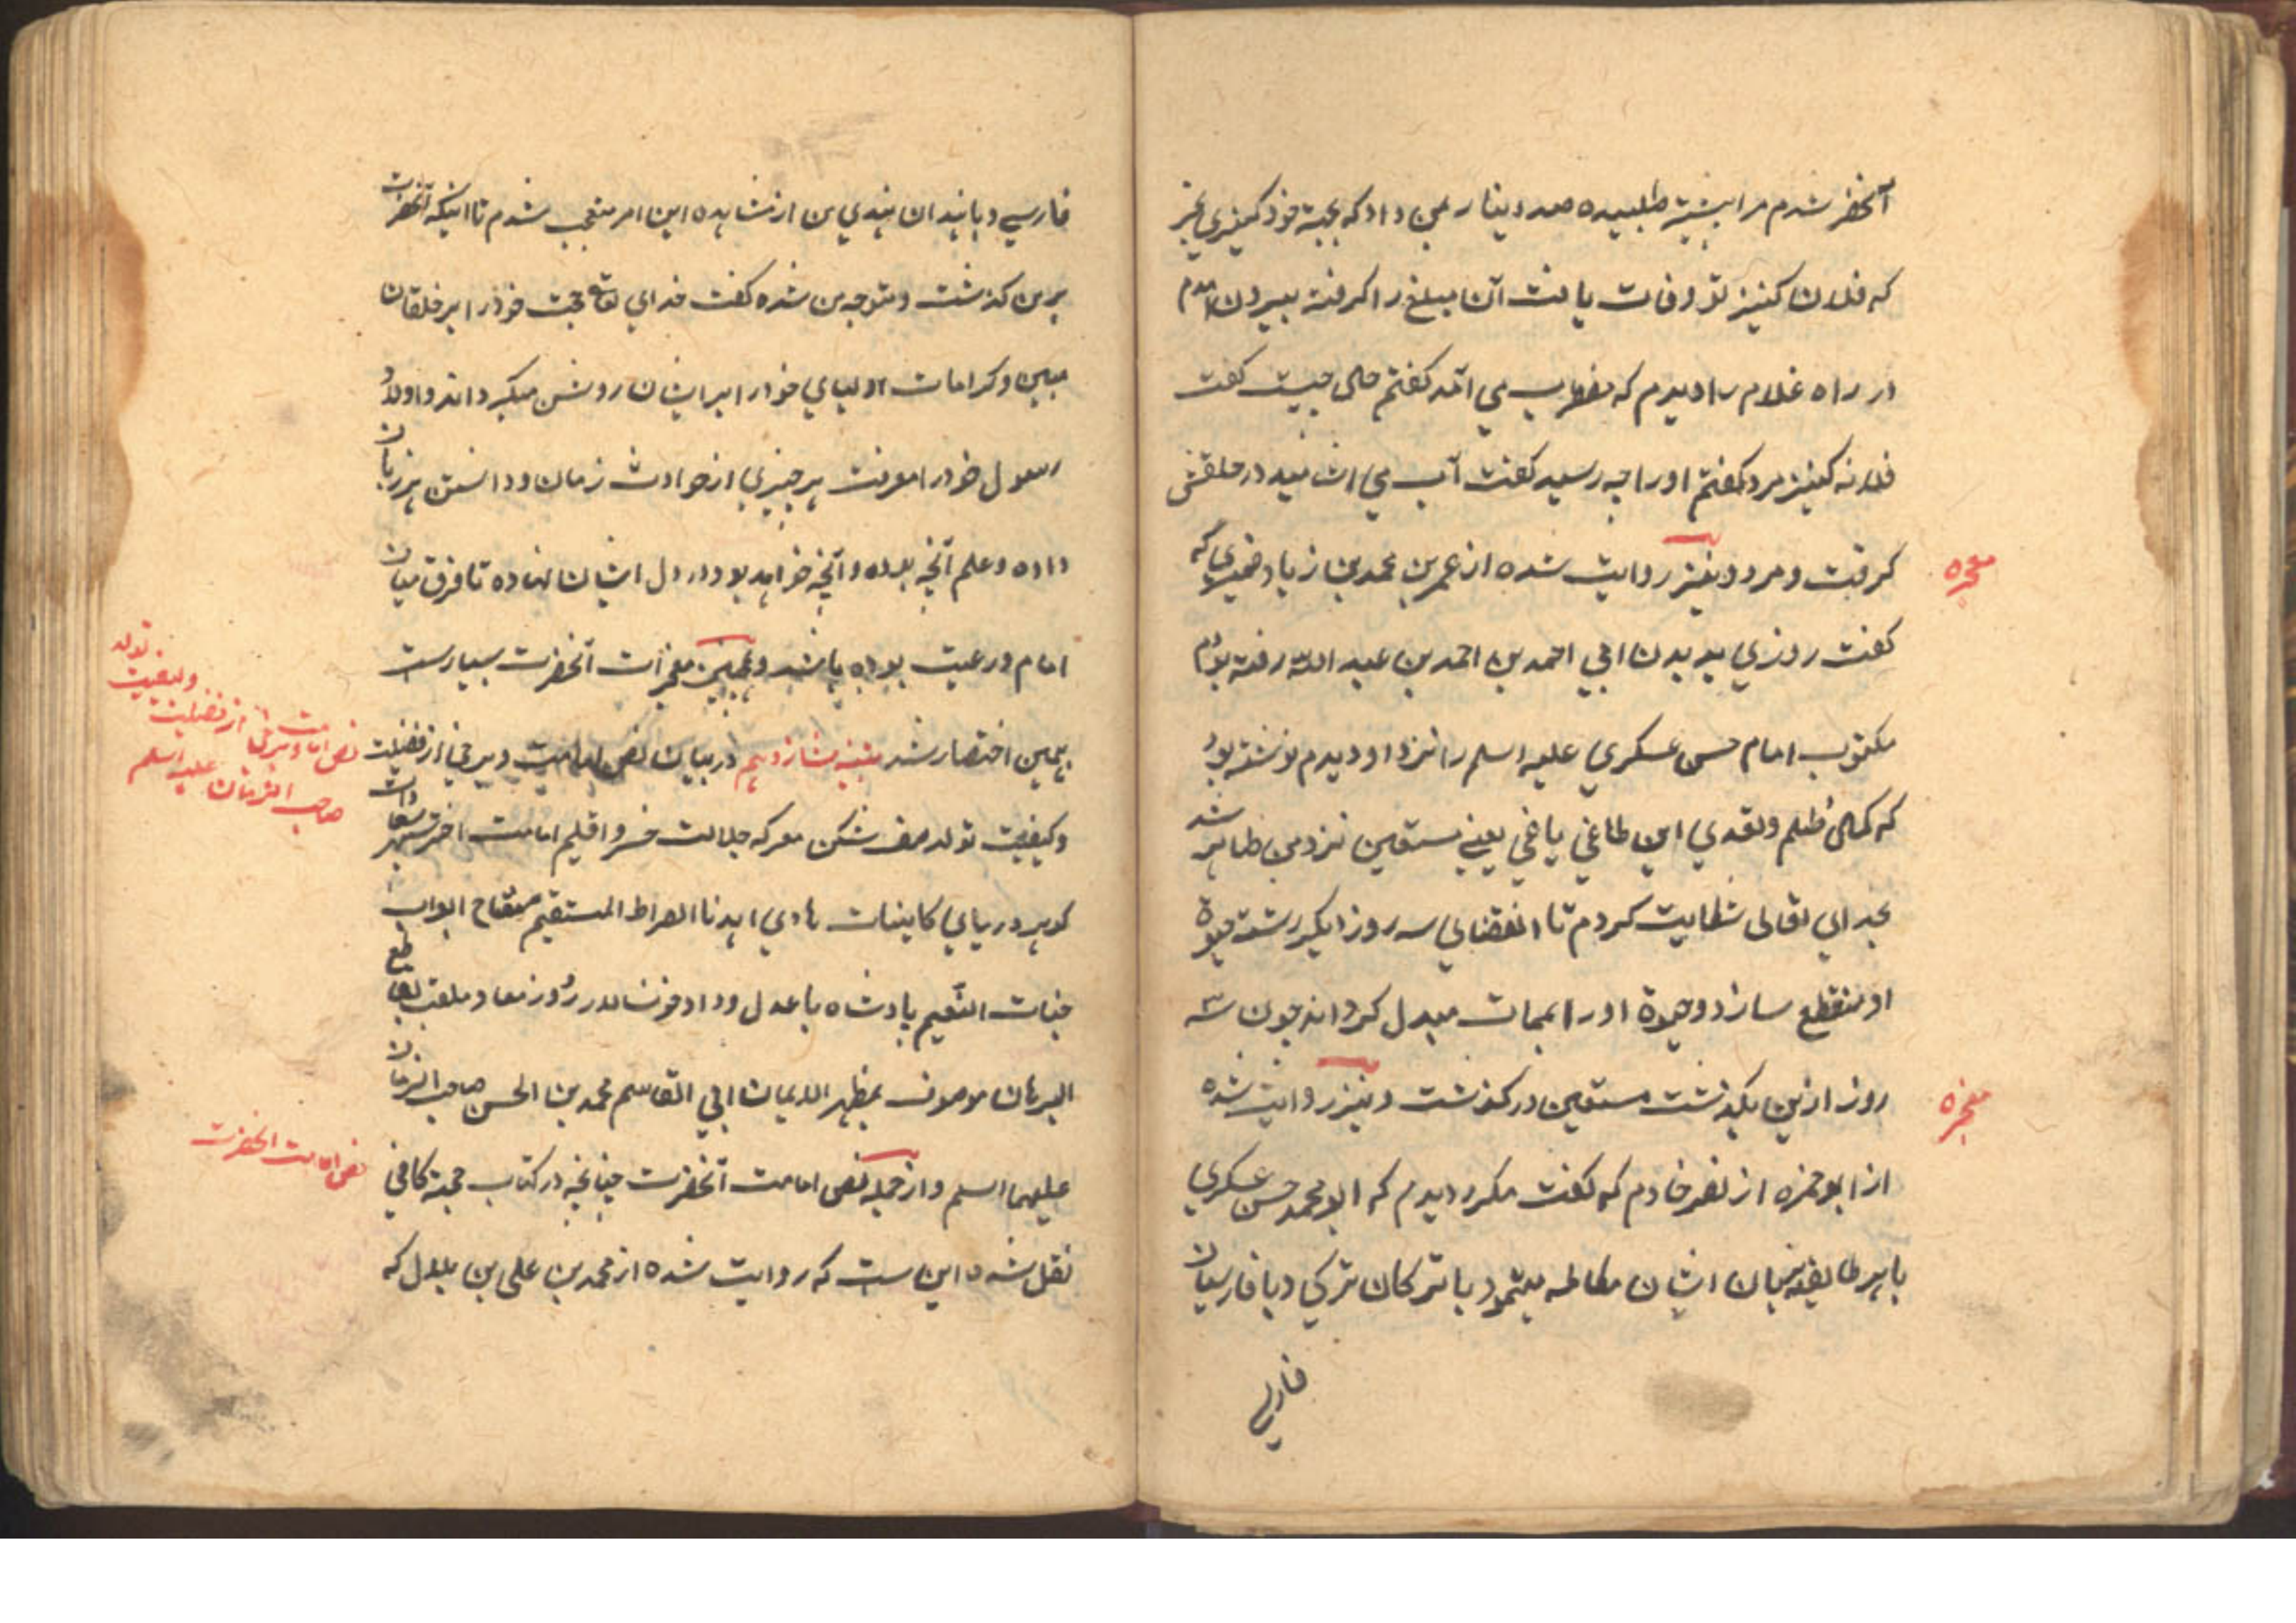 آنحضر شدم مرا به پیش طلبیده صد دینار بمن داد که بجهة خوذ کنیزی بخر
که فلان کنیز تو وفات یافت آن مبلغ را گرفته بیرون آمدم
در راه غلام را دیدم که مضطرب می آمد گفتم حال چیست گفت
فلانه کنیز مرد گفتم او را چه رسید گفت آب می اشامید در حلقش
گرفت و مرد و نیز روایت شده از عمر بن محمد بن زیاد ضمیری که
معجزه
گفت روزی بدیدن ابی احمد بن احمد بن عبد الله رفته بودم
مکتوب امام حسن عسکری علیه اسلم را نزد او دیدم نوشته بود
که کمال ظلم و تعدی این طاغی یاغی یعنی مستعین نزد من ظاهر شد
بخدای تعالی شکایت کردم تا انقضای سه روز دیگر رشته حیوة
او منقطع سازد و حیوة او را بممات مبدل گرداند چون سه
روز ازین بگذشت مستعین درگذشت و نیز روایت شده
معجزه
از ابو حمزه از نصر خادم که گفت مکرر دیدم که ابو محمد حسن عسکری
با هر طایفه بزبان ایشان مکالمه مینمود با ترکان ترکی و با فارسیان
فارسی
فارسی و با هندیان هندی من از مشاهده این امر متعجب شدم تا اینکه آنحضرت
بر من گذشت و متوجه من شده گفت خدای تعالی حجت خوذ را بر خلقان
مبین و کرامات اولیای خوذ را بر ایشان روشن میگرداند و اولاد
رسول خوذ را معرفت هر چیزی از حوادث زمان و دانستن هر زبان
داده و علم آنچه بوده و آنچه خواهد بود در دل ایشان نهاده تا فرق میان
امام و رعیت بوده باشد و همچنین معجزات آنحضرت بسیارست
بهمین اختصار شد بقیه شانزدهم در بیان نص امامت و برخی از فضیلت
نص امامت و برخی از فضیلت
و کیفیت تولد
صاحب الزمان علیه اسلم
و کیفیت تولد صف شکن معرکه جلالت خسرو اقلیم امامت اختر سپهر سعادات
گوهر دریای کاینات هادی اهدنا الصراط المستقیم مفتاح ابواب
جنات النعیم پادشاه با عدل و داد خونسالار روز معاد ملقب بقاطع
البرهان موصوف بمظهر الایمان ابی القاسم محمد بن الحسن صاحب الزمان
علیهما اسلم و از جمله نص امامت آنحضرت چنانچه در کتاب حجة کافی
نص امامت انحضرت
نقل شده این است که روایت شده از محمد بن علی بن بلال که